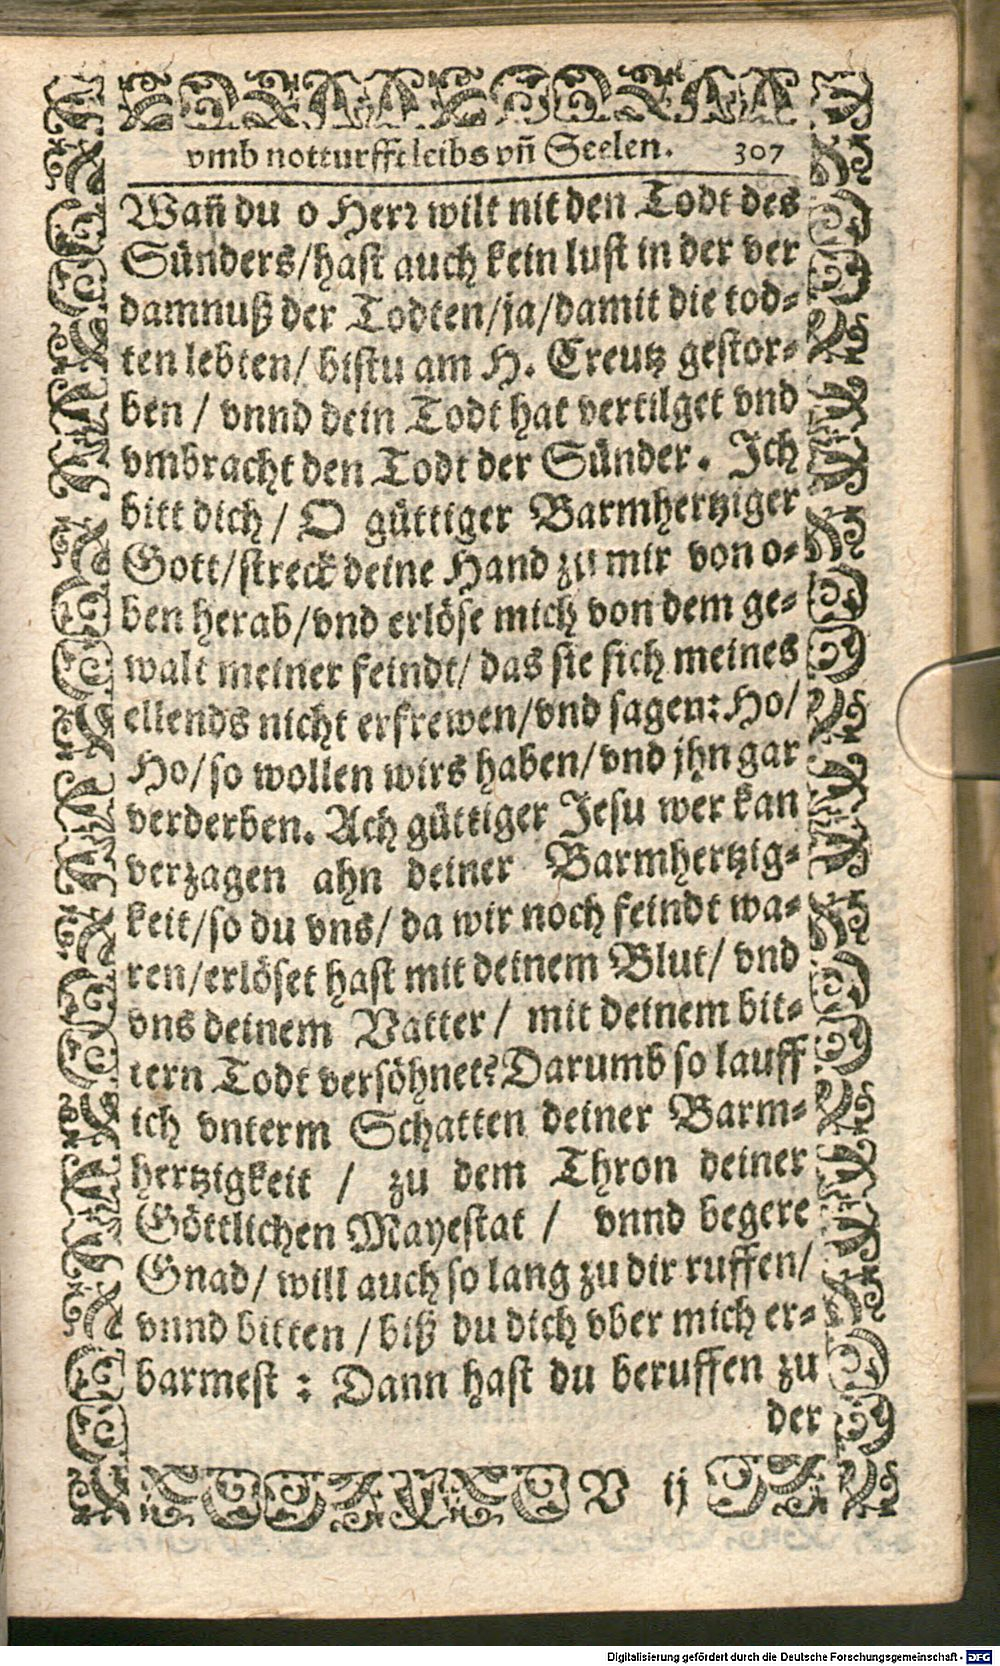 vmb notturfft leibs vn̄ Seelen. 307
Wan̄ du o Herr wilt nit den Todt des
Sünders/hast auch kein lust in der ver
damnuß der Todten/ja/damit die tod-
ten lebten/ bistu am H. Creutz gestor-
ben / vnnd dein Todt hat vertilget vnd
vmbracht den Todt der Sünder. Ich
bitt dich/ O güttiger Barmhertziger
Gott/streck deine Hand zu mir von o-
ben herab/vnd erlöse mich von dem ge-
walt meiner feindt/ das sie sich meines
ellends nicht erfrewen/vnd sagen: Ho/
Ho/so wollen wirs haben/vnd jhn gar
verderben. Ach güttiger Jesu wer kan
verzagen ahn deiner Barmhertzig-
keit/so du vns/ da wir noch feindt wa-
ren/erlöset hast mit deinem Blut/ vnd
vns deinem Vatter/ mit deinem bit-
tern Todt versöhnet? Darumb so lauff
ich vnterm Schatten deiner Barm-
hertzigkeit / zu dem Thron deiner
Göttlichen Mayestat / vnnd begere
Gnad/ will auch so lang zu dir ruffen/
vnnd bitten / biß du dich vber mich er-
barmest : Dann hast du beruffen zu
der
V ij
Digitalisierung gefördert durch die Deutsche Forschungsgemeinschaft - DFG